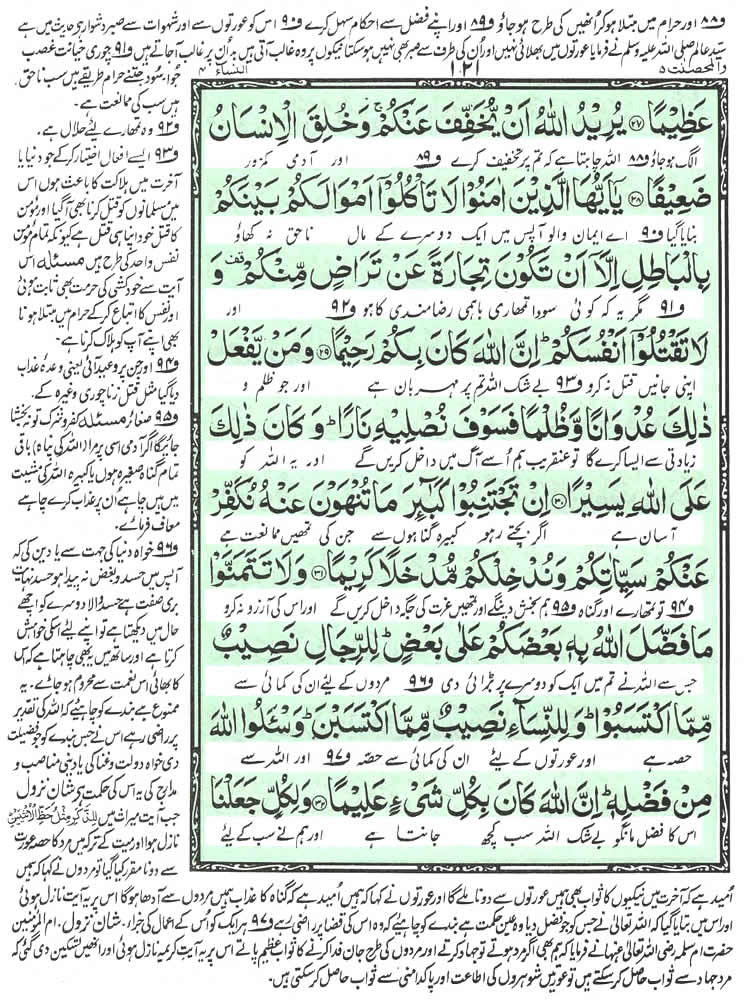 و۸۸ اور حرام میں مبتلا ہو کر انھیں کی طرح ہوجاؤ و۸۹ اور اپنے فضل سے احکام سہل کرے و۹۰ اس کو عورتوں سے اور شہوات سے صبر دشوار ہے حدیث میں ہے
سید عالم صلی اللہ علیہ وسلم نے فرمایا عورتوں میں بھلائی نہیں اور اُن کی طرف سے صبر بھی نہیں ہوسکتا نیکوں پر وہ غالب آتی ہیں بد اُن پر غالب آجاتے ہیں و۹۱ چوری خیانت غصب
والمحصنت ۵
۱۲۱
النساء ۴
عَظِيْمًا ﴿۲۷﴾ يُرِيْدُ اللّٰهُ اَنْ يُّخَفِّفَ عَنْكُمْ ۚ وَخُلِقَ الْاِنْسَانُ
الگ ہوجاؤ و۸۸ اللہ چاہتا ہے کہ تم پر تخفیف کرے و۸۹ اور آدمی کمزور
ضَعِيْفًا ﴿۲۸﴾ يٰۤاَيُّهَا الَّذِيْنَ اٰمَنُوْا لَا تَاْكُلُوْۤا اَمْوَالَكُمْ بَيْنَكُمْ
بنایا گیا و۹۰ اے ایمان والو آپس میں ایک دوسرے کے مال ناحق نہ کھاؤ
بِالْبَاطِلِ اِلَّاۤ اَنْ تَكُوْنَ تِجَارَةً عَنْ تَرَاضٍ مِّنْكُمْ ۫ وَ
و۹۱ مگر یہ کہ کوئی سودا تمھاری باہمی رضامندی کا ہو و۹۲ اور
لَا تَقْتُلُوْۤا اَنْفُسَكُمْ ؕ اِنَّ اللّٰهَ كَانَ بِكُمْ رَحِيْمًا ﴿۲۹﴾ وَمَنْ يَّفْعَلْ
اپنی جانیں قتل نہ کرو و۹۳ بے شک اللہ تم پر مہربان ہے اور جو ظلم و
ذٰلِكَ عُدْوَانًا وَّظُلْمًا فَسَوْفَ نُصْلِيْهِ نَارًا ؕ وَكَانَ ذٰلِكَ
زیادتی سے ایسا کرے گا تو عنقریب ہم اُسے آگ میں داخل کریں گے اور یہ اللہ کو
عَلَى اللّٰهِ يَسِيْرًا ﴿۳۰﴾ اِنْ تَجْتَنِبُوْا كَبَآئِرَ مَا تُنْهَوْنَ عَنْهُ نُكَفِّرْ
آسان ہے اگر بچتے رہو کبیرہ گناہوں سے جن کی تمھیں ممانعت ہے
عَنْكُمْ سَيِّاٰتِكُمْ وَنُدْخِلْكُمْ مُّدْخَلًا كَرِيْمًا ﴿۳۱﴾ وَلَا تَتَمَنَّوْا
و۹۴ تو تمھارے اور گناہ و۹۵ ہم بخش دینگے اور تمھیں عزت کی جگہ داخل کریں گے اور اس کی آرزو نہ کرو
مَا فَضَّلَ اللّٰهُ بِهٖ بَعْضَكُمْ عَلٰى بَعْضٍ ؕ لِلرِّجَالِ نَصِيْبٌ
جس سے اللہ نے تم میں ایک کو دوسرے پر بڑائی دی و۹۶ مردوں کے لئے ان کی کمائی سے
مِّمَّا اكْتَسَبُوْا ؕ وَلِلنِّسَآءِ نَصِيْبٌ مِّمَّا اكْتَسَبْنَ ؕ وَسْئَلُوا اللّٰهَ
حصہ ہے اور عورتوں کے لیئے ان کی کمائی سے حصّہ و۹۷ اور اللہ سے
مِنْ فَضْلِهٖ ؕ اِنَّ اللّٰهَ كَانَ بِكُلِّ شَىْءٍ عَلِيْمًا ﴿۳۲﴾ وَلِكُلٍّ جَعَلْنَا
اس کا فضل مانگو بے شک اللہ سب کچھ جانتا ہے اور ہم نے سب کے لیئے
جوا سود جتنے حرام طریقے ہیں سب ناحق
ہیں سب کی ممانعت ہے۔
و۹۲ وہ تمھارے لیئے حلال ہے۔
و۹۳ ایسے افعال اختیار کرکے جو دنیا یا
آخرت میں ہلاکت کا باعث ہوں اس
میں مسلمانوں کو قتل کرنا بھی آگیا اور مومن
کا قتل خود اپنا ہی قتل ہے کیونکہ تمام مومن
نفس واحد کی طرح ہیں مسئلہ اس
آیت سے خودکشی کی حرمت بھی ثابت ہوئی
اور نفس کا اتباع کرکے حرام میں مبتلا ہونا
بھی اپنے آپ کو ہلاک کرنا ہے۔
و۹۴ اور جن پر وعید آئی یعنی وعدہ عذاب
دیا گیا مثل قتل زنا چوری وغیرہ کے۔
و۹۵ صغائر مسئلہ کفر و شرک تو نہ بخشا
جائیگا اگر آدمی اسی پر مرا (اللہ کی پناہ) باقی
تمام گناہ صغیرہ ہوں یا کبیرہ اللہ کی مشیت
میں ہیں چاہے اُن پر عذاب کرے چاہے
معاف فرمائے۔
و۹۶ خواہ دنیا کی جہت سے یا دین کی کہ
آپس میں حسد و بغض نہ پیدا ہو حسد نہایت
بری صفت ہے حسد والا دوسرے کو اچھے
حال میں دیکھتا ہے تو اپنے لیے اسکی خواہش
کرتا ہے اور ساتھ میں یہ بھی چاہتا ہے کہ اس
کا بھائی اس نعمت سے محروم ہوجائے۔ یہ
ممنوع ہے بندے کو چاہیئے کہ اللہ کی تقدیر
پر راضی رہے اس نے جس بندے کو جو فضیلت
دی خواہ دولت و غنا کی یا دینی مناصب و
مدارج کی یہ اس کی حکمت ہے شان نزول
جب آیت میراث میں لِلذَّكَرِ مِثْلُ حَظِّ الْاُنْثَيَيْنِ
نازل ہوا اور میت کے ترکہ میں مرد کا حصہ عورت
سے دونا مقرر کیا گیا تو مردوں نے کہا کہ ہمیں
امید ہے کہ آخرت میں نیکیوں کا ثواب بھی ہمیں عورتوں سے دونا ملے گا اور عورتوں نے کہا کہ ہمیں امید ہے کہ گناہ کا عذاب ہمیں مردوں سے آدھا ہوگا اس پر یہ آیت نازل ہوئی
اور اس میں بتایا گیا کہ اللہ تعالیٰ نے جس کو جو فضل دیا وہ عین حکمت ہے بندے کو چاہیئے کہ وہ اس کی قضا پر راضی رہے و۹۷ ہر ایک کو اُس کے اعمال کی جزا۔ شان نزول۔ ام المؤمنین
حضرت ام سلمہ رضی اللہ تعالیٰ عنہا نے فرمایا کہ ہم بھی اگر مرد ہوتے تو جہاد کرتے اور مردوں کی طرح جان فدا کرنے کا ثواب عظیم پاتے اس پر یہ آیت کریمہ نازل ہوئی اور انھیں تسکین دی گئی کہ
مرد جہاد سے ثواب حاصل کرسکتے ہیں تو عورتیں شوہروں کی اطاعت اور پاکدامنی سے ثواب حاصل کرسکتی ہیں۔